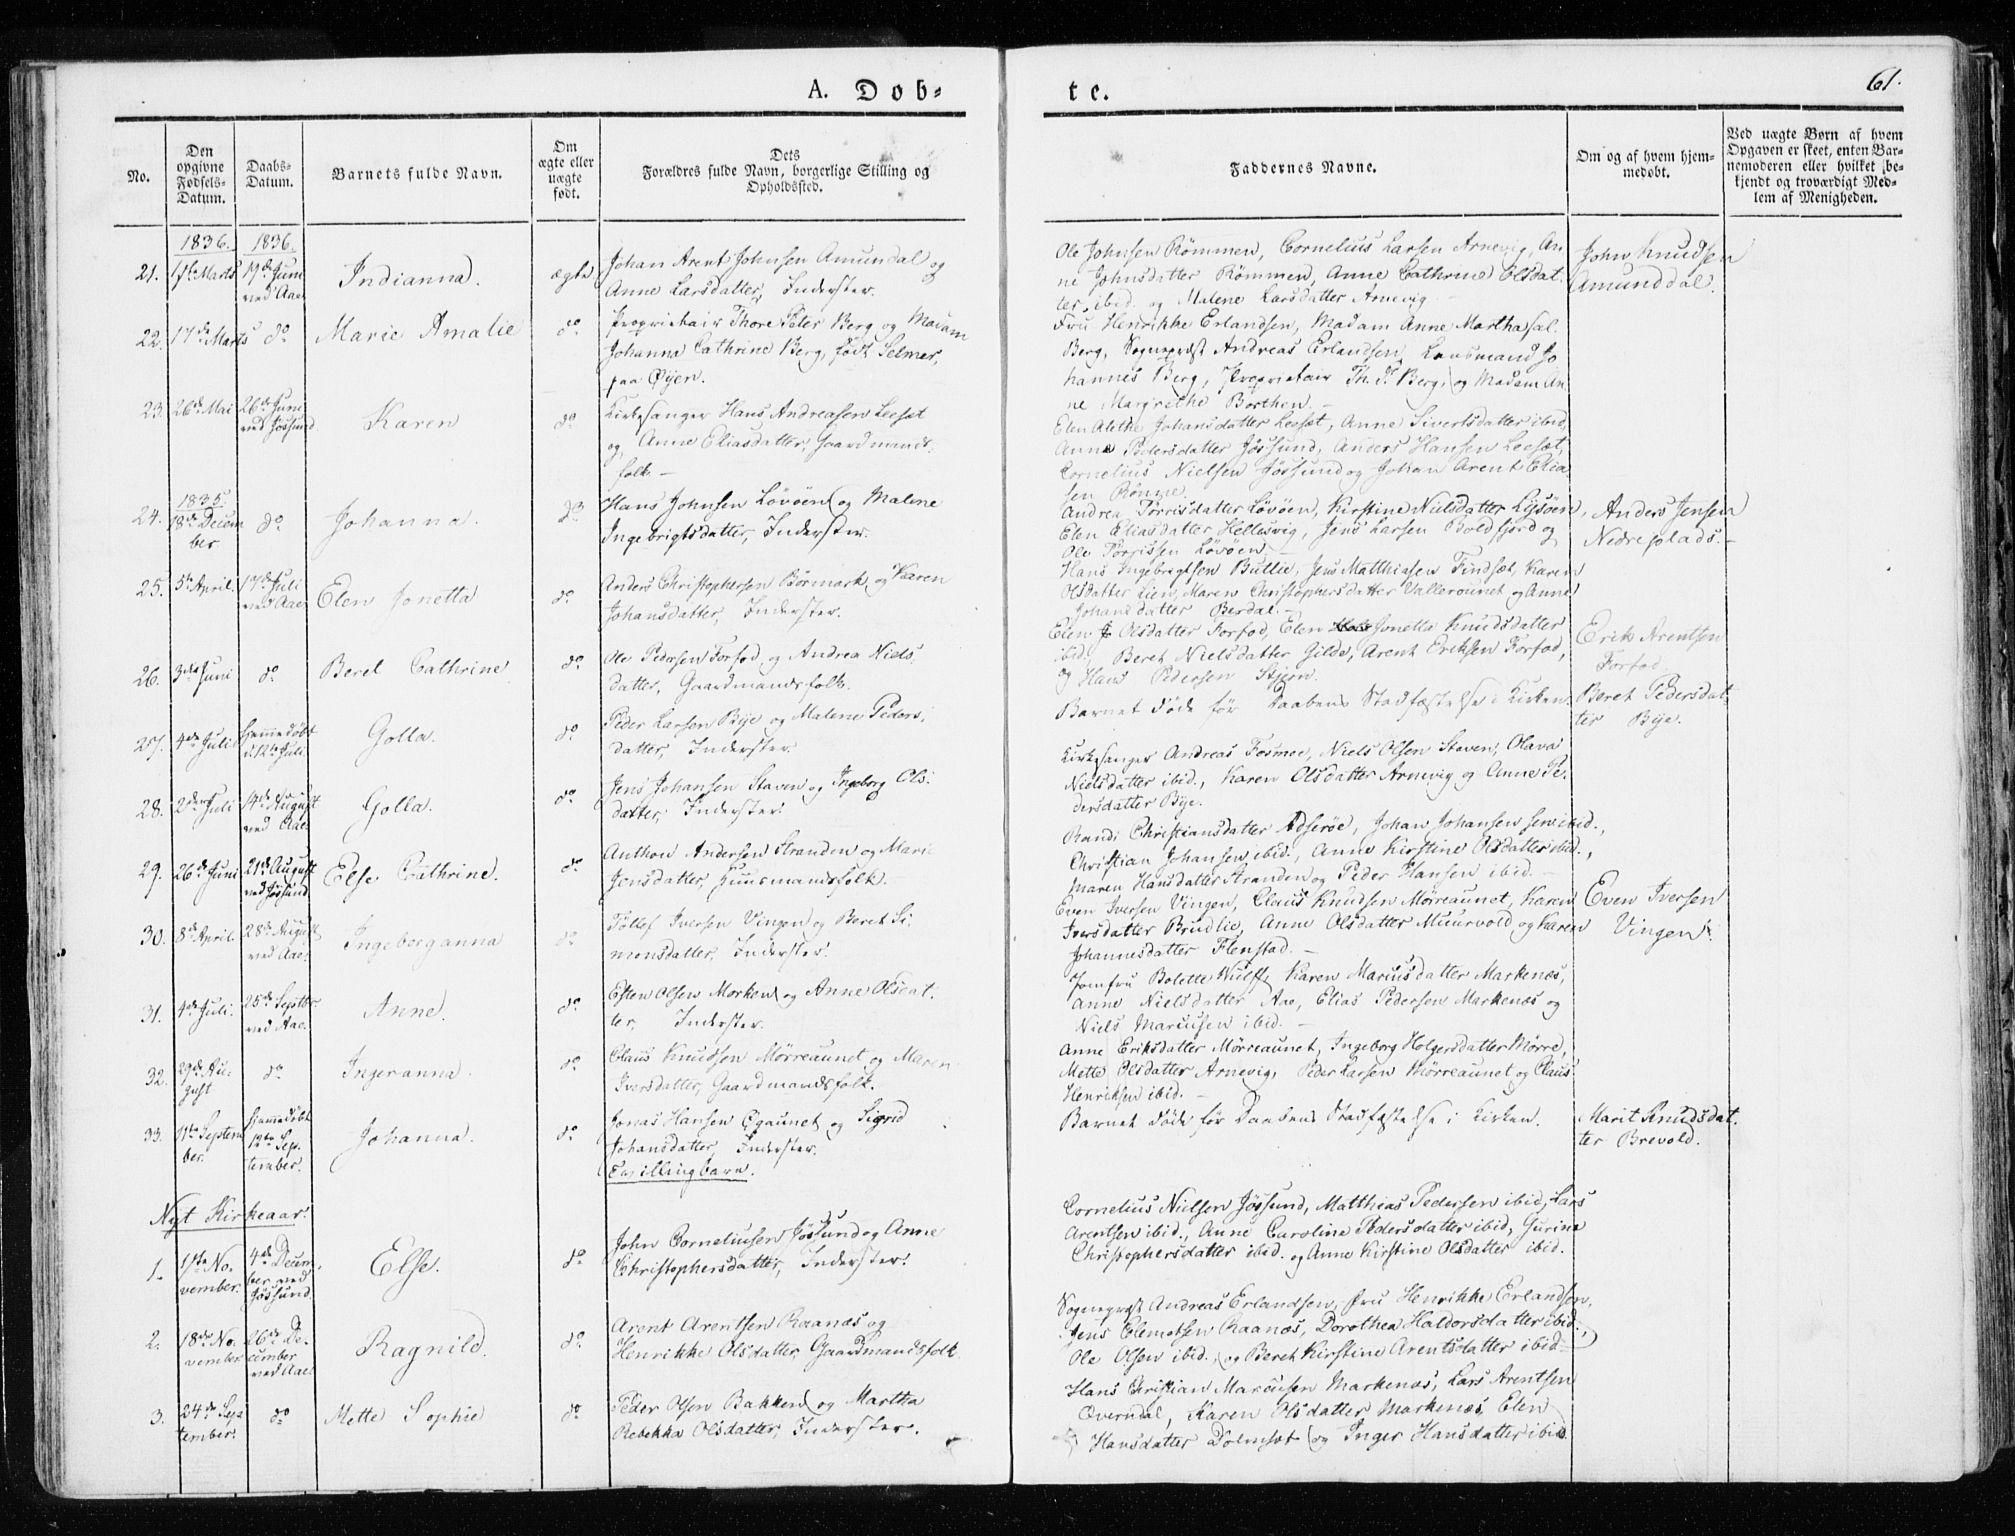 A. Döb-
te.
61.
No.
Den opgivne Fødsels-Datum.
Daabs-Datum.
Barnets fulde Navn.
Om ægte eller uægte født.
Dets Forældres fulde Navn, borgerlige Stilling og Opholdssted.
Faddernes Navne.
Om og af hvem hjemmedøbt.
Ved uægte Børn af hvem Opgaven er skeet, enten Barnemoderen eller hvilket bekjendt og troværdigt Medlem af Menigheden.
1836. 1836.
21. Marts 19de Juni ved Aae. Indianna. ægte Johan Arent Johnsen Amundal og
Anne Larsdatter, Inderster.
Ole Johnsen Rømmen, Cornelius Larsen Arnevig, An-
ne Johnsdatter Rømmen, Anne Cathrine Olsdat-
ter, ibid. og Malene Larsdatter Arnevig. –
John Knudsen
Amunddal.
22. 17de Marts do Marie Amalie do Proprietair Thore Peter Berg og Madam
Johanna Cathrine Berg, født Selmer,
paa Øyen.
Fru Henrikke Erlandsen, Madam Anne Martha sal.
Berg, Sognepræst Andreas Erlandsen, Lensmand Jo
hannes Berg, Proprietair Th. P. Berg, og Madam An-
ne Margrethe Borthen. –
23. 26de Mai 26de Juni ved Jøssund. Karen do Kirkesanger Hans Andreasen Leeset
og Anne Eliasdatter, Gaardmands-
folk. –
Elen Alethe Johansdatter Leeset, Anne Sivertsdatter ibid,
Anne Pedersdatter Jøssund, Anders Hansen Leeset,
Cornelius Nielsen Jøssund og Johan Arent Elia-
sen
24. 1835. 18de Decem
ber. do Johanna. do Hans Johnsen Løvøen og Malene
Ingebrigtsdatter, Inderster.
Andrea Torrisdatter Løvøen, Kirstine Nielsdatter Lysøen,
Elen Eliasdatter Hellesvig, Jens Larsen Boldfjord og
Ole Torrissen Løvøen. –
Anders Jensen
Nedreplads. –
25. 5te April. 17de Juli ved Aae. Elen Jonetta do Anders Christophersen Børmark og Karen
Johansdatter, Inderster.
Hans Ingebrigtsen Butlie, Jens Matthiasen Findset, Karen
Olsdatter Lien, Maren Christophersdatter Vallerounet og Anne
Johansdatter Berdal. –
26. 3die Juni do Beret Cathrine do Ole Pedersen Forfod og Andrea Niels-
datter, Gaardmandsfolk.
Elen Olsdatter Forfod, Elen Jonetta Knudsdatter
ibid, Beret Nielsdatter Gilde, Arent Eriksen Forfod,
og Hans Pedersen Stjern.
Erik Arentsen
Forfod.
27. 4de Juli Hjemmedøbt d. 12te Juli. Golla. do Peder Larsen Bye og Malene Peders-
datter, Inderster.
Barnet døde før Daabens Stadfæstelse i Kirken.
Beret Pedersdat-
ter Bye.
28. 2den Juli 14de August ved Aae. Golla. do Jens Johansen Staven og Ingeborg Ols-
datter, Inderster.
Kirkesanger Andreas Fosmoe, Niels Olsen Staven, Olava
Nielsdatter ibid., Karen Olsdatter Arnevig og Anne Pe-
dersdatter Bye.
29. 26de Juni 21de August ved Jøssund Else Cathrine. do Anthon Andersen Stranden og Mari
Jensdatter, Huusmandsfolk.
Randi Christiansdatter Adserøe, Johan Johansen sen. ibid.,
Christian Johansen ibid., Anne Kirstine Olsdatter ibid.,
Maren Hansdatter Stranden og Peder Hansen ibid. –
30. 8de April. 28de August ved Aae. Ingeborganna do Tøllef Iversen Vingen og Beret Si-
monsdatter, Inderster.
Even Iversen Vingen, Claus Knudsen Mørreaunet, Karen
Iversdatter Brudlie, Anne Olsdatter Muurvold og Karen
Johannesdatter Flenstad. –
Even Iversen
Vingen.
31. 4de Juli. 25de Septbr ved Aae. Anne. do Esten Olsen Morken og Anne Olsdat-
ter, Inderster.
Jomfru Bolette Wulff, Karen Mariusdatter Markenæs,
Anne Nielsdatter Aae, Elias Pedersen Markenæs og
Niels Marcusen ibid. –
32. 29de Au-
gust do Ingeranna. do Claus Knudsen Mørreaunet og Maren
Iversdatter, Gaardmandsfolk.
Anne Eriksdatter Mørreaunet, Ingeborg Holgersdatter Mørre,
Mette Olsdatter Arnevig, Peder Larsen Mørreaunet og Claus
Henriksen ibid. –
33. 11te Septem
ber. Hjemmedøbt 12te Sep-
tember. Johanna. do Jonas Hansen Egaunet og Sigrid
Johansdatter, Inderster.
Tvillingbarn.
Barnet døde før Daabens Stadfæstelse i Kirken.
Marit Knudsdat-
ter Brevold.
Nyt Kirkeaar.
1. 1ste No-
vember. 4de Decem-
ber ved
Jøssund. Else. do John Corneliusen Jøssund og Anne
Christophersdatter, Inderster.
Cornelius Nielsen Jøssund, Matthias Pedersen ibid, Lars
Arentsen ibid., Anne Caroline Pedersdatter ibid, Gurina
Christophersdatter ibid. og Anne Kirstine Olsdatter ibid.
2. 18de No-
vember 26de De-
cember
ved Aae. Ragnild. do Arent Arentsen Raanæs og
Henrikke Olsdatter, Gaardmandsfolk
Sognepræst Andreas Erlandsen, Fru Henrikke Erlandsen,
Jens Clemetsen Raanæs, Dorothea Haldorsdatter ibid.,
Ole Olsen ibid., og Beret Kirstine Arentsdatter ibid.
3. 24de Sep
tember. do Mette Sophie do Peder Olsen Bakken og Martha
Rebekka Olsdatter, Inderster.
Hans Christian Marcusen Markenæs, Lars Arentsen
Overndal, Karen Olsdatter Markenæs, Elen
Hansdatter Dolmset og Inger Hansdatter ibid.